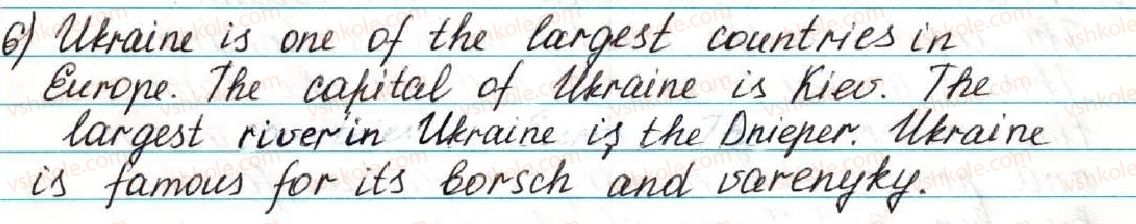 6) Ukraine is one of the largest countries in
Europe. The capital of Ukraine is Kiev. The
largest river in Ukraine is the Dnieper. Ukraine
is famous for its borsch and varenyky.